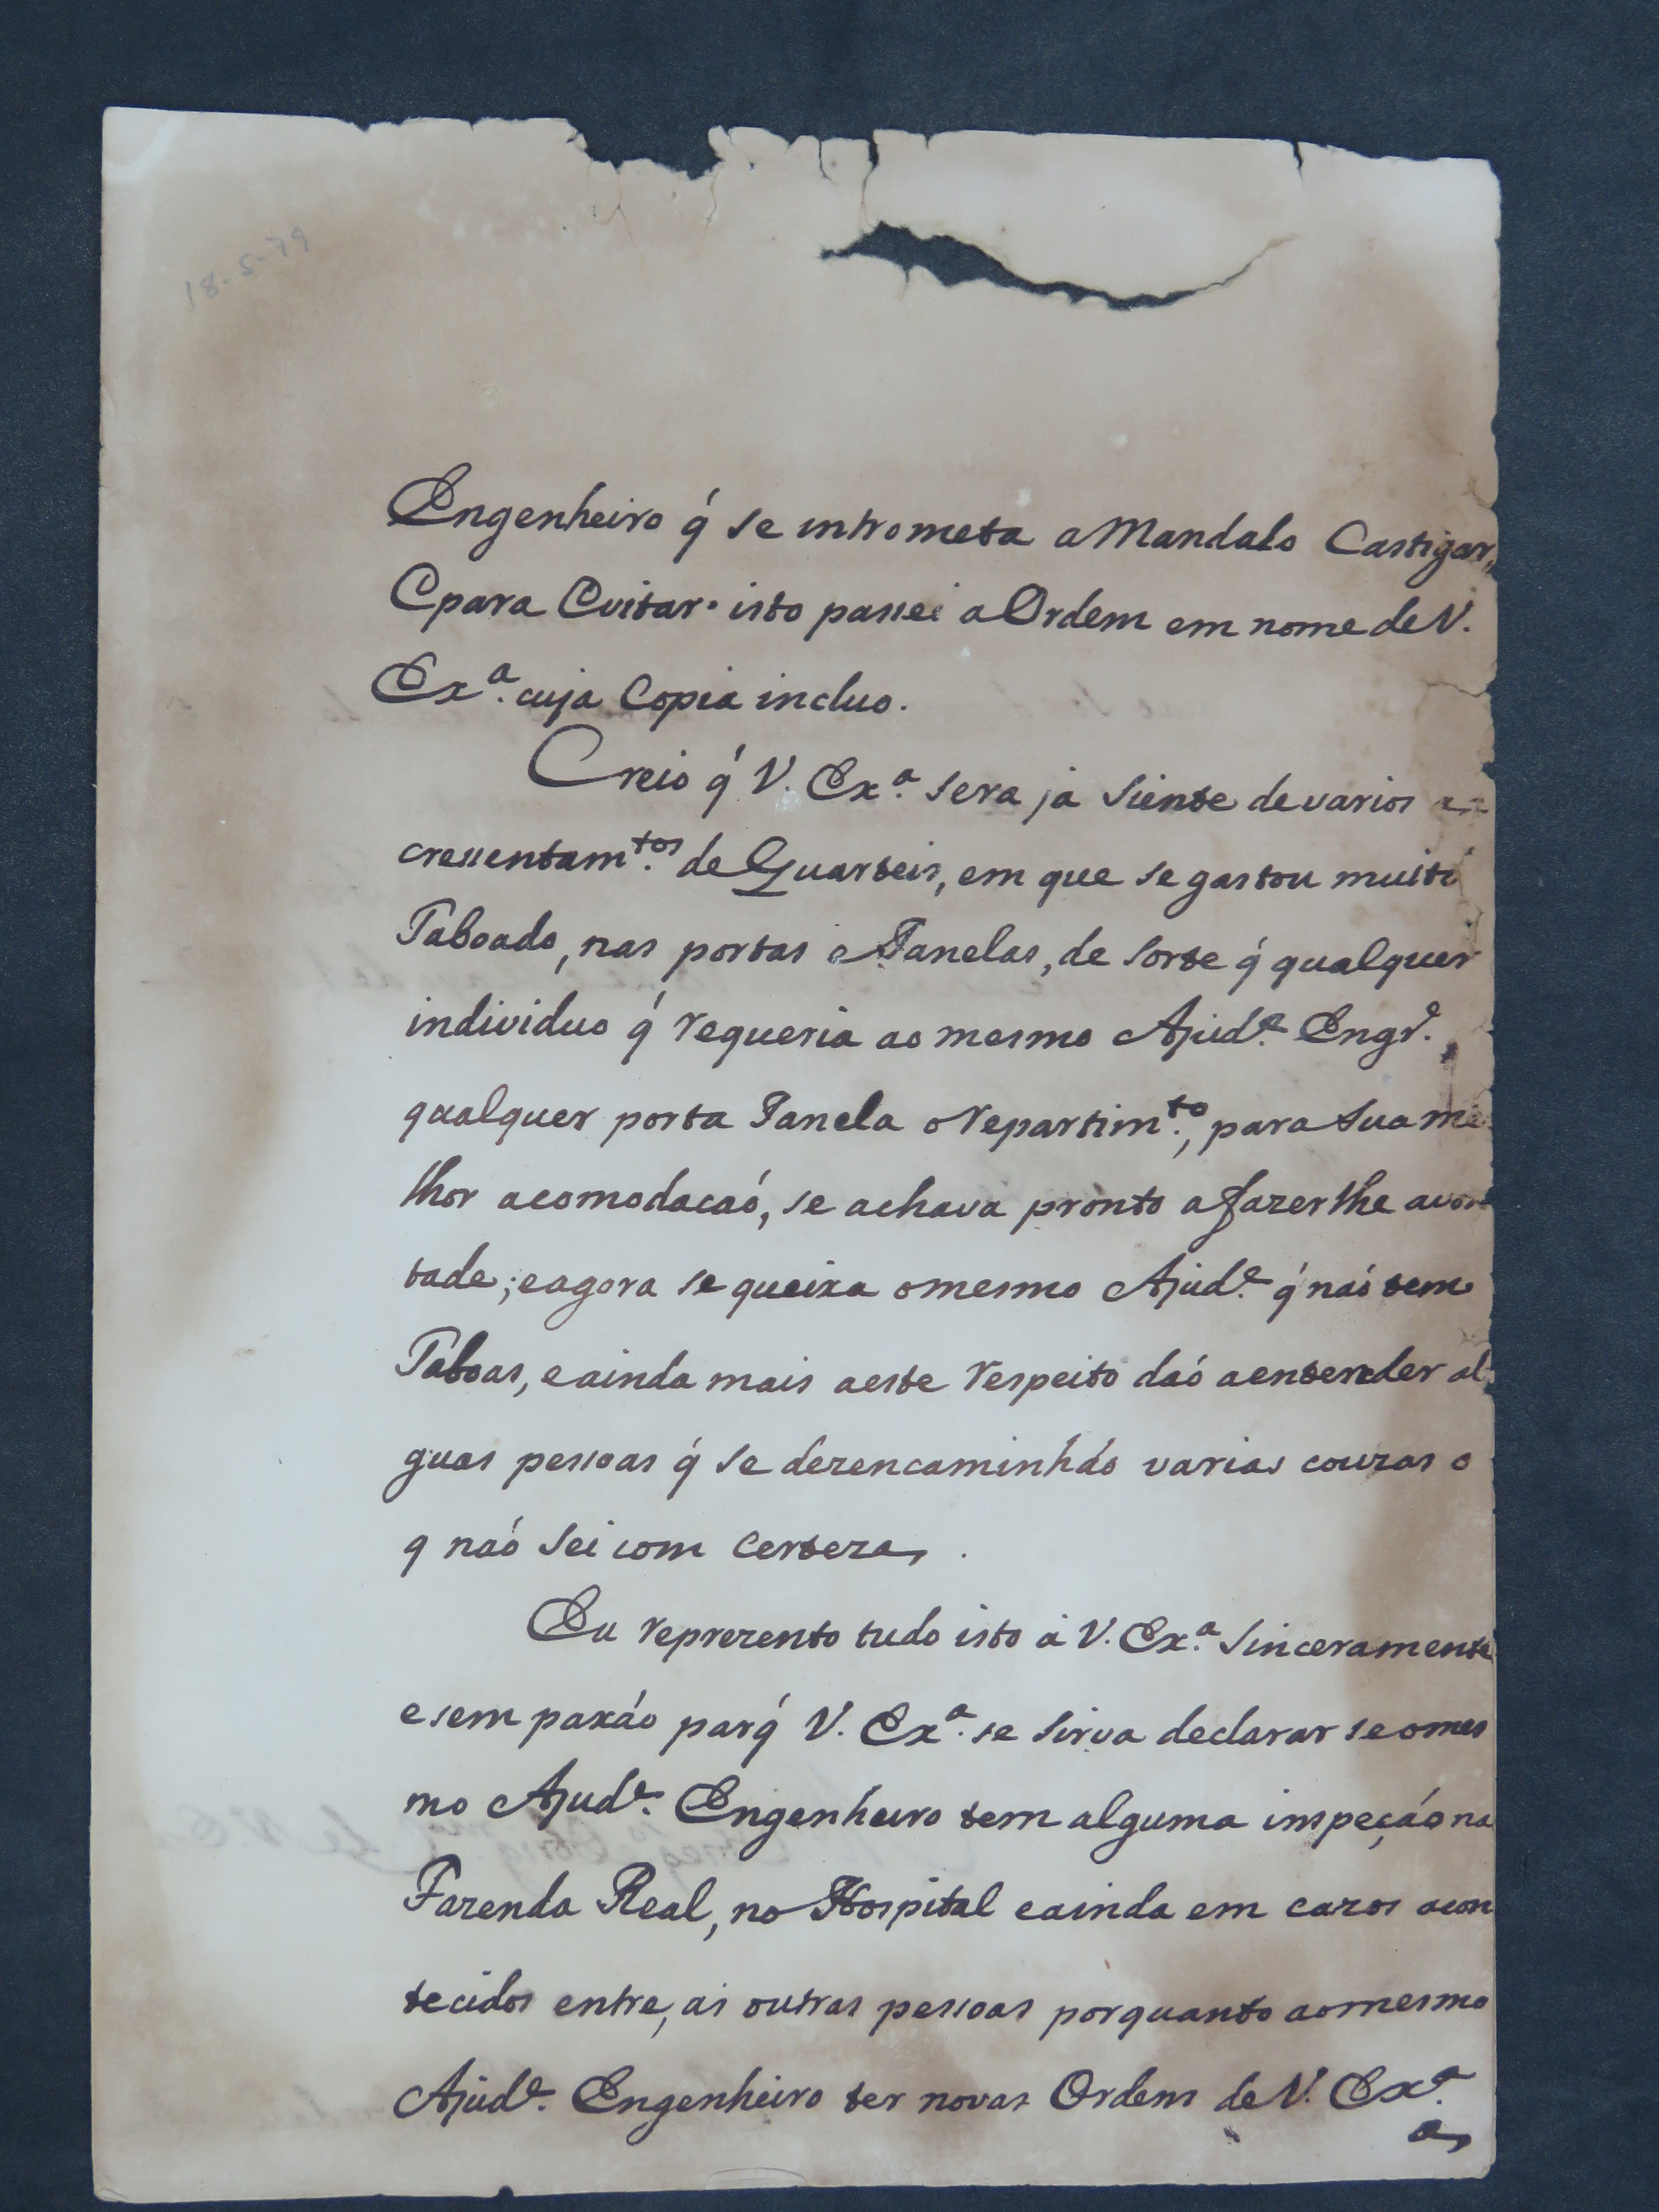 18-5-79
Engenheiro q́ se intrometa a Mandalo Castigar,,
E para Evitar isto passei a Ordem em nome de V.
Ex.ª cuja Copia incluo.
Creio q́ V. Ex.ª sera ja siente de varios
cressentam.tos de Quarteis, em que se gastou muito
Taboado, nas portas e Janelas, de sorte q́ qualquer
individuo q́ requeria ao mesmo Ajud.e Engr.o
qualquer porta Janela o repartim.to, para sua me
lhor acomodacaó, se achava pronto a fazerlhe avon
tade; e agora se queixa o mesmo Ajud.e q́ naó tem
Taboas, e ainda mais a este respeito daó a entender al
guas pessoas q́ se dezencaminháo varias couzas o
q naó sei com certeza.
Eu reprezento tudo isto á V. Ex.ª sinceramente
e sem paxáo parq́ V. Ex.ª se sirva declarar se o mes
mo Ajud.e Engenheiro tem alguma inspeçáo na
Fazenda Real, no Hospital e ainda em cazos acon
tecidos entre, as outras pessoas porquanto ao mesmo
Ajud.e Engenheiro ter novas Ordens de V. Ex.ª
a